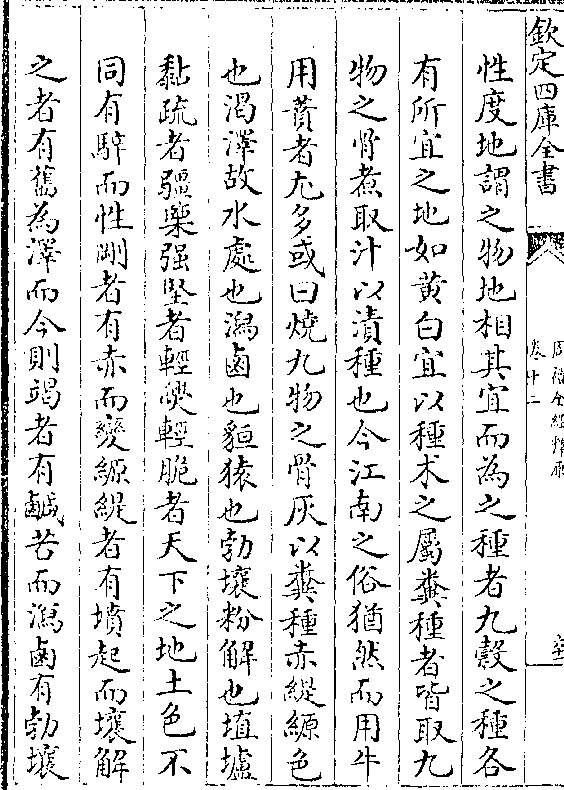 欽定四庫全書
周禮全經釋原
卷十二
性度地謂之物地相其宜而為之種者九穀之種各
有所宜之地如黄白宜以種朮之屬糞種者皆取九
物之骨煮取汁以漬種也今江南之俗猶然而用牛
用蕡者尤多或曰燒九物之骨灰以糞種赤緹縓色
也渴澤故水處也潟鹵也貆猿也勃壤粉解也埴壚
黏疏者彊㯺强堅者輕㸐輕脆者天下之地土色不
同有騂而性剛者有赤而變縓緹者有墳起而壤解
之者有舊為澤而今則竭者有鹹苦而潟鹵有勃壤